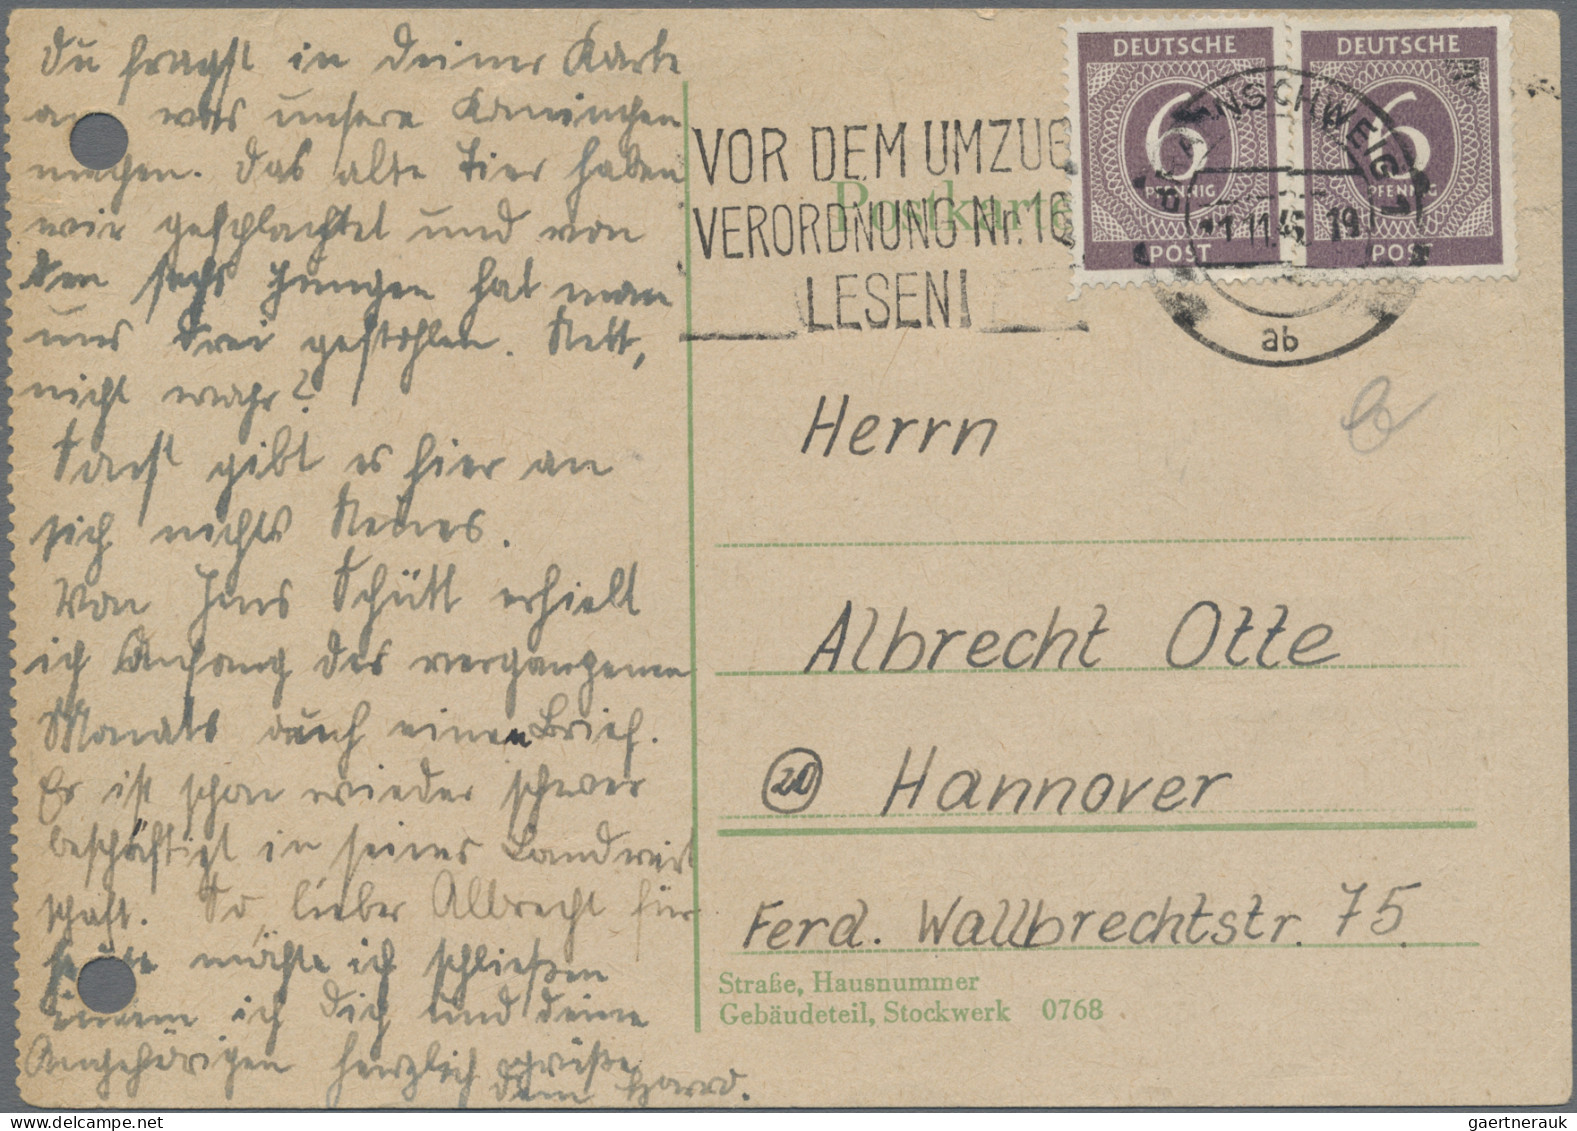 Du fragst in deiner Karte
an was unsere Kaninchen
machen. Das alte Tier haben
wir geschlachtet und von
den sechs Jungen hat man
uns drei gestohlen. Nett,
nicht wahr?
Sonst gibt es hier an
sich nichts Neues.
Von Jens Schütt erhielt
ich Anfang des vergangenen
Monats auch einen Brief.
Er ist schon wieder schwer
beschäftigt in seiner Landwirt
schaft. So, lieber Albrecht für
heute möchte ich schließen
indem ich Dich und deine
Angehörigen herzlich grüße
Dein
DEUTSCHE
6
PFENNIG
POST
DEUTSCHE
6
PFENNIG
POST
BRAUNSCHWEIG 1
11.11.4 19
ab
VOR DEM UMZUG
VERORDNUNG Nr. 16
LESEN!
Postkarte
Herrn
Albrecht Otte
20 Hannover
Ferd. Wallbrechtstr. 75.
Straße, Hausnummer
Gebäudeteil, Stockwerk 0768
gaertnerauk